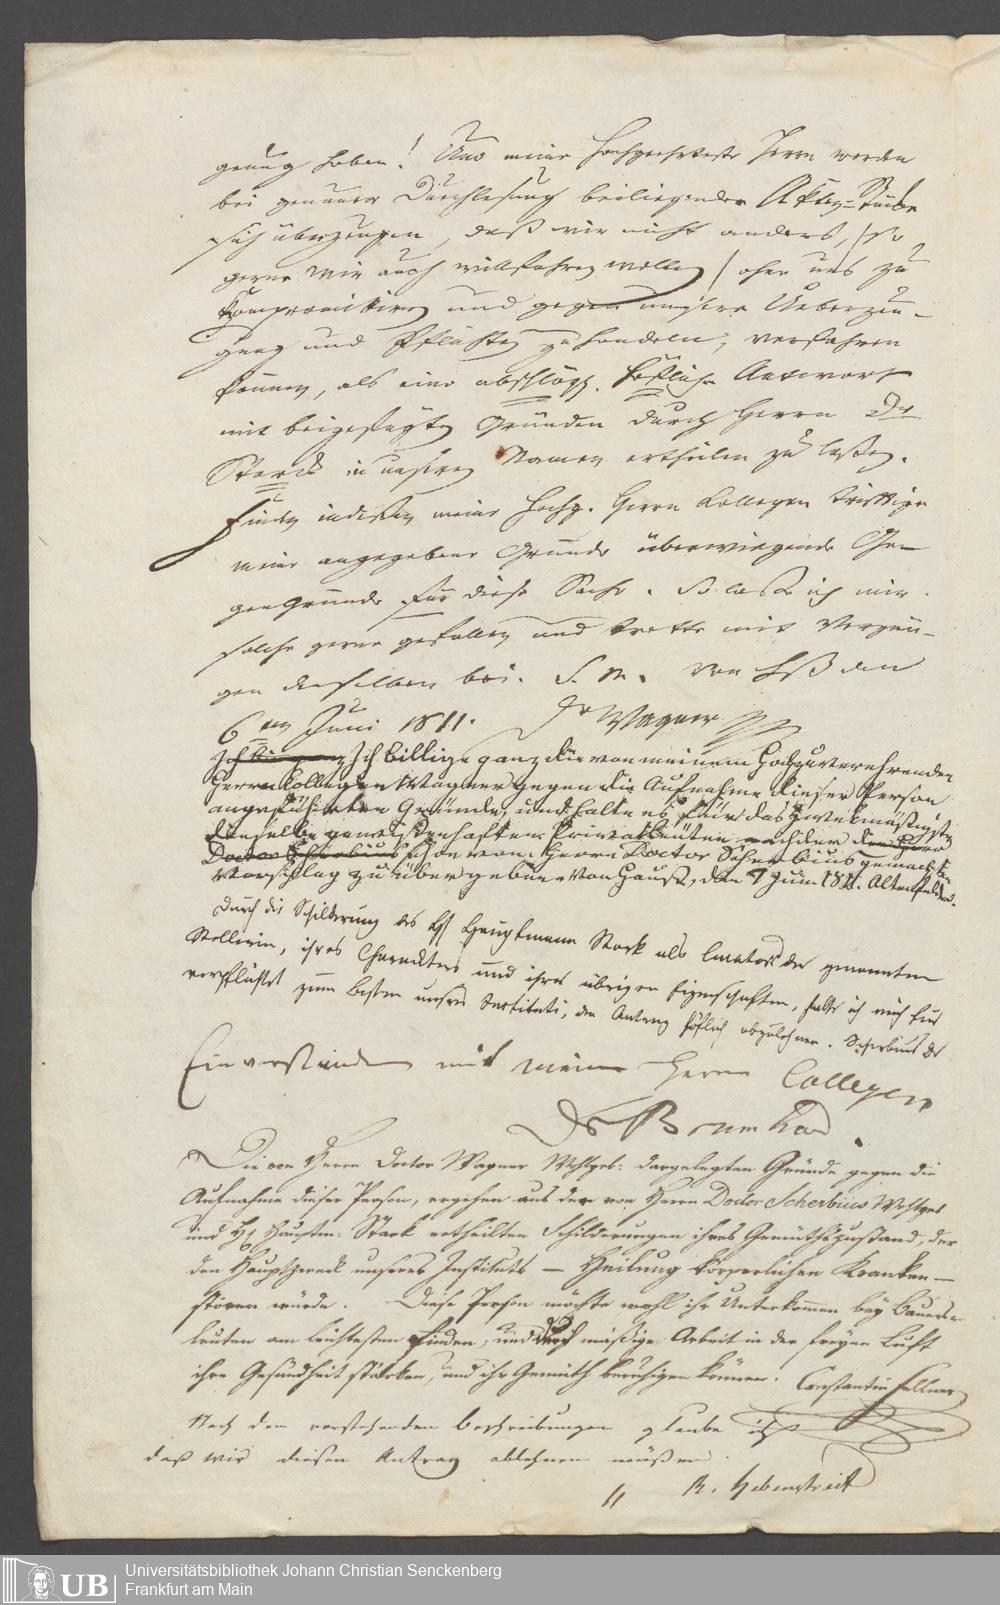 genug haben! Und meine Hochgeehrteste Herrn werden
bei genauer Durchlesung beiliegender Akten-Stücke
sich überzeugen, daß wir nicht anders, /so
gerne wir auch willfahren wollten/ ohne uns zu
kompromittiren und gegen unsere Ueberzeu-
gung und Pflichten zu handeln, verfahren
können, als eine abschlägl. höfliche Antwort
mit beigefügten Gründen durch Herrn Dr
Starck in unsren Namen ertheilen zu laßen.
Finden indeßen meine Hochg. Herrn Kollegen triftige
meine angegebene Gründe überwiegende Ge-
gengründe für diese Sache. So laße ich mir
solche gerne gefallen und trette mit Vergnü-
gen denselben bei. S. M. von Hß den
6ten Juni 1811. Dr Wagner
Ich billige ganz die von meinem Hochzuverehrenden
Herrn Collegen Wagner gegen die Aufnahme dieser Person
angeführten Gründe, und halte es für das Zwekmäsigste
dieselbe gewissenhaften Privatleuten nach dem
schon vom Herrn Doctor Scherbius gemachten
Vorschlag zu übergeben. Von Hauß, den 7 Juni 1811. Altenfelder.
Durch die Schilderung des H Hauptmann Stark als Curator der genannten
Stellwin, ihres Charackters und ihrer übrigen Eigenschaften, halte ich mich für
verpflichtet zum besten unsres Instituts, den Antrag höflich abzulehnen. Scherbius Dr
Einverstanden mit meinen Herrn Collegen
Dr
Die von Herrn Doctor Wagner Wohlgeb: dargelegten Gründe gegen die
Aufnahme dieser Person, ergehen aus der von Herrn Doctor Scherbius Wohlgeb
und H Hauptm: Stark ertheilten Schilderungen ihres Gemüthszustand, der
den Hauptzweck unseres Instituts – Heilung körperlichen Kranken –
stören würde. Diese Person möchte wohl ihr Unterkommen bey Bauers-
leuten am leichtesten finden, und durch mäßige Arbeit in der freyen Luft
ihre Gesundheit stärken, und ihr Gemüth beruhigen können. Constantin Fellner
Nach den vorstehenden Beschreibungen glaube ich
daß wir diesen Antrag ablehnen müßen.
R. Hebenstreit
UB
Universitätsbibliothek Johann Christian Senckenberg
Frankfurt am Main